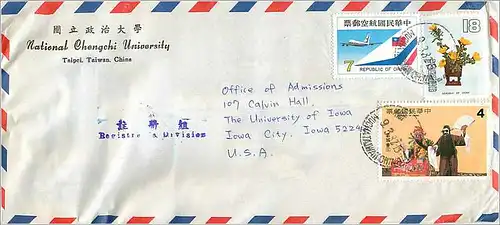 國立政治大學
National Chengchi University
Taipei, Taiwan, China
註冊組
Registry Division
Office of Admissions
107 Calvin Hall.
The University of Iowa
Iowa City, Iowa 5224
U.S.A.
票郵空航國民華中
7
REPUBLIC OF CHINA
18
票郵國民華中
4